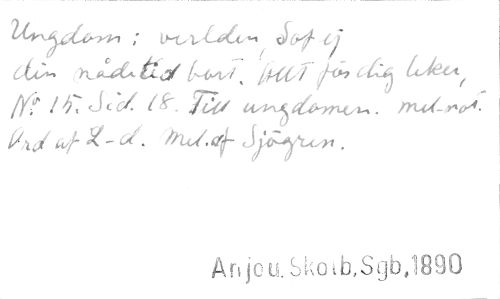 Ungdom i verlden, Sof ej
din nådetid bort. Allt för dig leker,
No 15. Sid. 18. Till ungdomen. mel-not.
Ord af L-d. Mel. af Sjögren.
Anjou, Skolb, Sgb, 1890